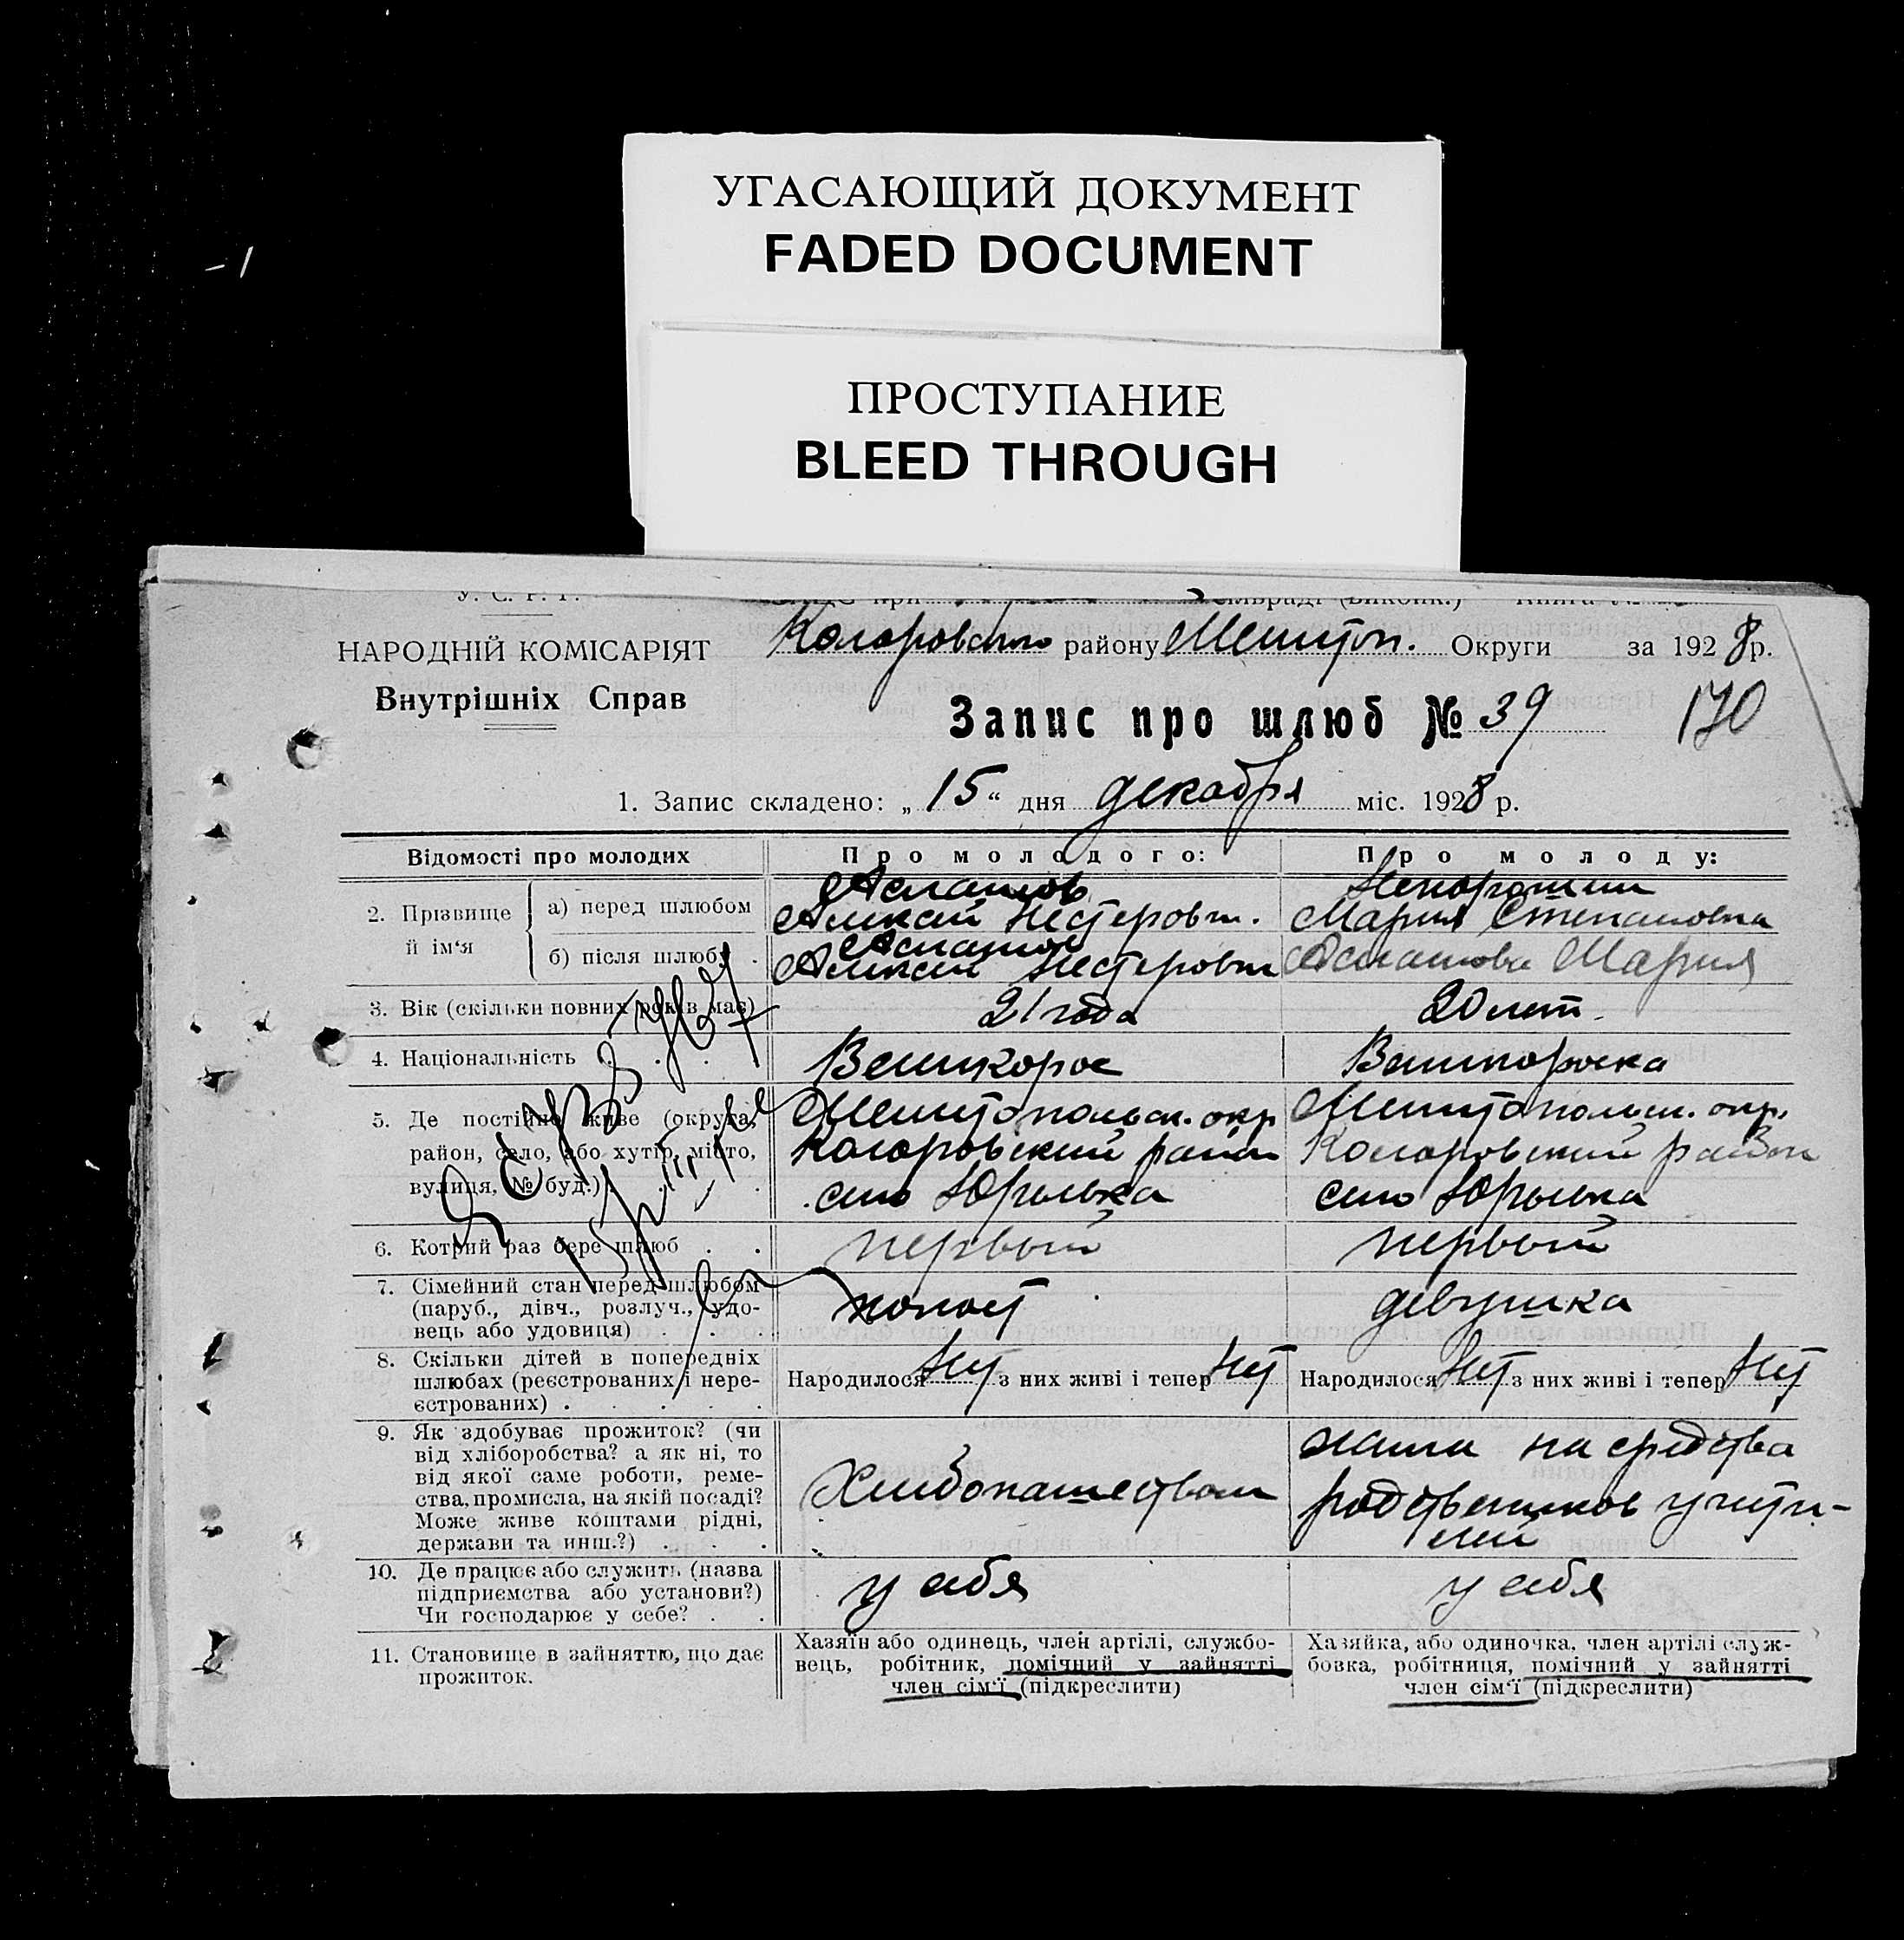 УГАСАЮЩИЙ ДОКУМЕНТ
FADED DOCUMENT
ПРОСТУПАНИЕ
BLEED THROUGH
У. С. Р. Р.
НАРОДНІЙ КОМІСАРІЯТ
Внутрішніх Справ
району Мелитоп. Округи за 1928 р.
Запис про шлюб № 39
170
1. Запис складено: „15“ дня декабря міс. 1928 р.
Відомості про молодих
Про молодого:
Про молоду:
2. Прізвище й ім‘я
а) перед шлюбом
Нестерович.
Мария Степановна
б) після шлюбу .
Нестерович
Мария
3. Вік (скільки повних років має)
21 года
20 лет.
4. Національність . . .
Великорос
Великороска
5. Де постійно живе (округа,
район, село, або хутір, місто,
вулиця, № буд.) . . .
Мелитопольск. окр
район
село Юрьевка
Мелитопольск. окр.
район
село Юрьевка
6. Котрий раз бере шлюб . .
первый
первый
7. Сімейний стан перед шлюбом
(паруб., дівч., розлуч., удо-
вець або удовиця) . . .
холост
девушка
8. Скільки дітей в попередніх
шлюбах (реєстрованих і нере-
єстрованих) . . . . .
Народилося нет з них живі і тепер нет
Народилося нет з них живі і тепер нет
9. Як здобуває прожиток? (чи
від хліборобства? а як ні, то
від якої саме роботи, реме-
ства, промисла, на якій посаді?
Може живе коштами рідні,
держави та инш.?) . . .
Хлебопашеством
жила на средства
родственников
10. Де працює або служить (назва
підприємства або установи?)
Чи господарює у себе? . .
у себя
у себя
11. Становище в зайняттю, що дає
прожиток.
Хазяїн або одинець, член артілі, службо-
вець, робітник, помічний у зайнятті
член сім‘ї (підкреслити)
Хазяйка, або одиночка, член артілі служ-
бовка, робітниця, помічний у зайнятті
член сім‘ї (підкреслити)